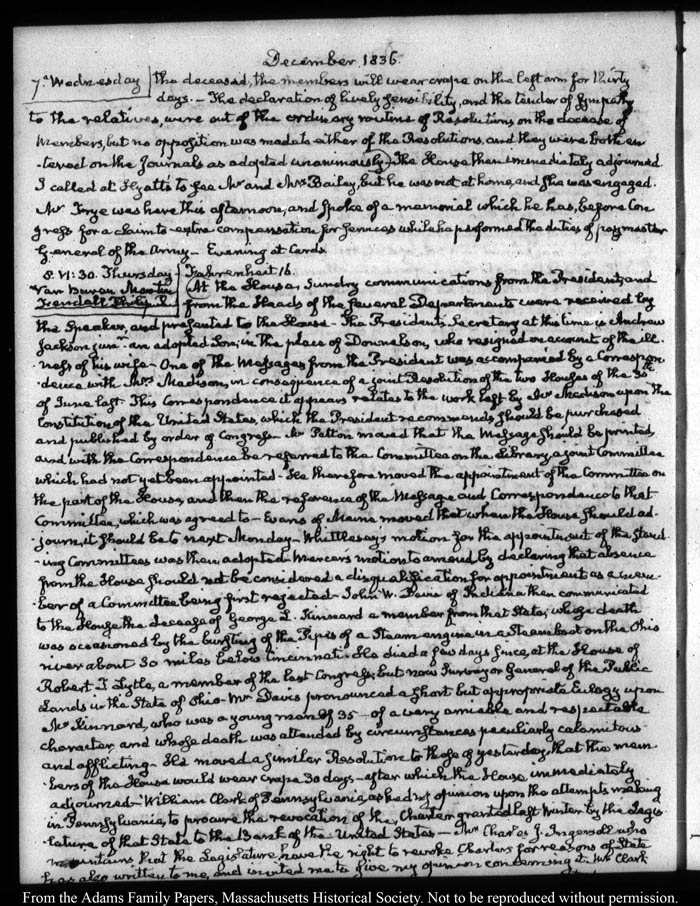 December 1836.
7. Wednesday the deceased, the members will wear crape on the left arm for thirty
days. — The declaration of lively sensibility, and the tender of sympathy
to the relatives, were out of the ordinary routine of Resolutions on the decease of
Members, but no opposition was made to either of the Resolutions, and they were both en-
-tered on the Journals as adopted unanimously. The House then immediately adjourned
I called at to see Mr and Mrs Bailey, but he was not at home, and she was engaged.
Mr Frye was here this afternoon, and spoke of a memorial which he has, before Con
gress for a claim to extra compensation for services while he performed the duties of paymaster
General of the Army — Evening at Cards
8. VI:30. Thursday Fahrenheit 16.
Van Buren Martin At the House, sundry communications from the President, and
Kendall Philip R. from the Heads of the several Departments were received by
the Speaker, and presented to the House — The President's Secretary at this time is Andrew
Jackson junr an adopted Son, in the place of Donnelson, who resigned on account of the ill-
ness of his wife — One of the Messages from the President was accompanied by a Correspon-
-dence with Mrs Madison, in consequence of a joint Resolution of the two Houses of the 30th
of June last. This Correspondence it appears relates to the work left by Mr Madison upon the
Constitution of the United States, which the President recommends should be purchased
and published by order of Congress. Mr Patton moved that the Message should be printed,
and with the Correspondence be referred to the Committee on the Library, a joint Committee
which had not yet been appointed — He therefore moved the appointment of the Committee on
the part of the House, and then the reference of the Message and Correspondence to that
Committee, which was agreed to — Evans of Maine moved that when the House should ad-
-journ, it should be to next Monday — Whittlesey's motion for the appointment of the stand-
-ing Committees was then adopted Mercer's motion to amend by declaring that absence
from the House should not be considered a disqualification for appointment as a mem-
-ber of a Committee being first rejected — John W. Davis of Indiana then communicated
to the House the decease of George L. Kinnard a member from that State; whose death
was occasioned by the bursting of the Pipes of a Steam engine in a Steamboat on the Ohio
river about 30 miles below Cincinnati. He died a few days since, at the House of
Robert T Lytle, a member of the last Congress, but now Surveyor General of the Public
Lands in the State of Ohio — Mr Davis pronounced a short but appropriate Eulogy upon
Mr Kinnard, who was a young man of 35 — of a very amiable and respectable
character, and whose death was attended by circumstances peculiarly calamitous
and afflicting — He moved a similar Resolution to those of yesterday, that the mem-
-bers of the House would wear crape 30 days — after which the House, immediately
adjourned — William Clark of Pennsylvania, asked my opinion upon the attempts making
in Pennsylvania, to procure the revocation of the Charter granted last Winter by the Legis-
-lature of that State to the Bank of the United States — Mr Charles J. Ingersoll who
maintains that the Legislature have the right to revoke Charters for reasons of State
has also written to me, and wanted me to give my opinion concerning it. Mr Clark
From the Adams Family Papers, Massachusetts Historical Society. Not to be reproduced without permission.